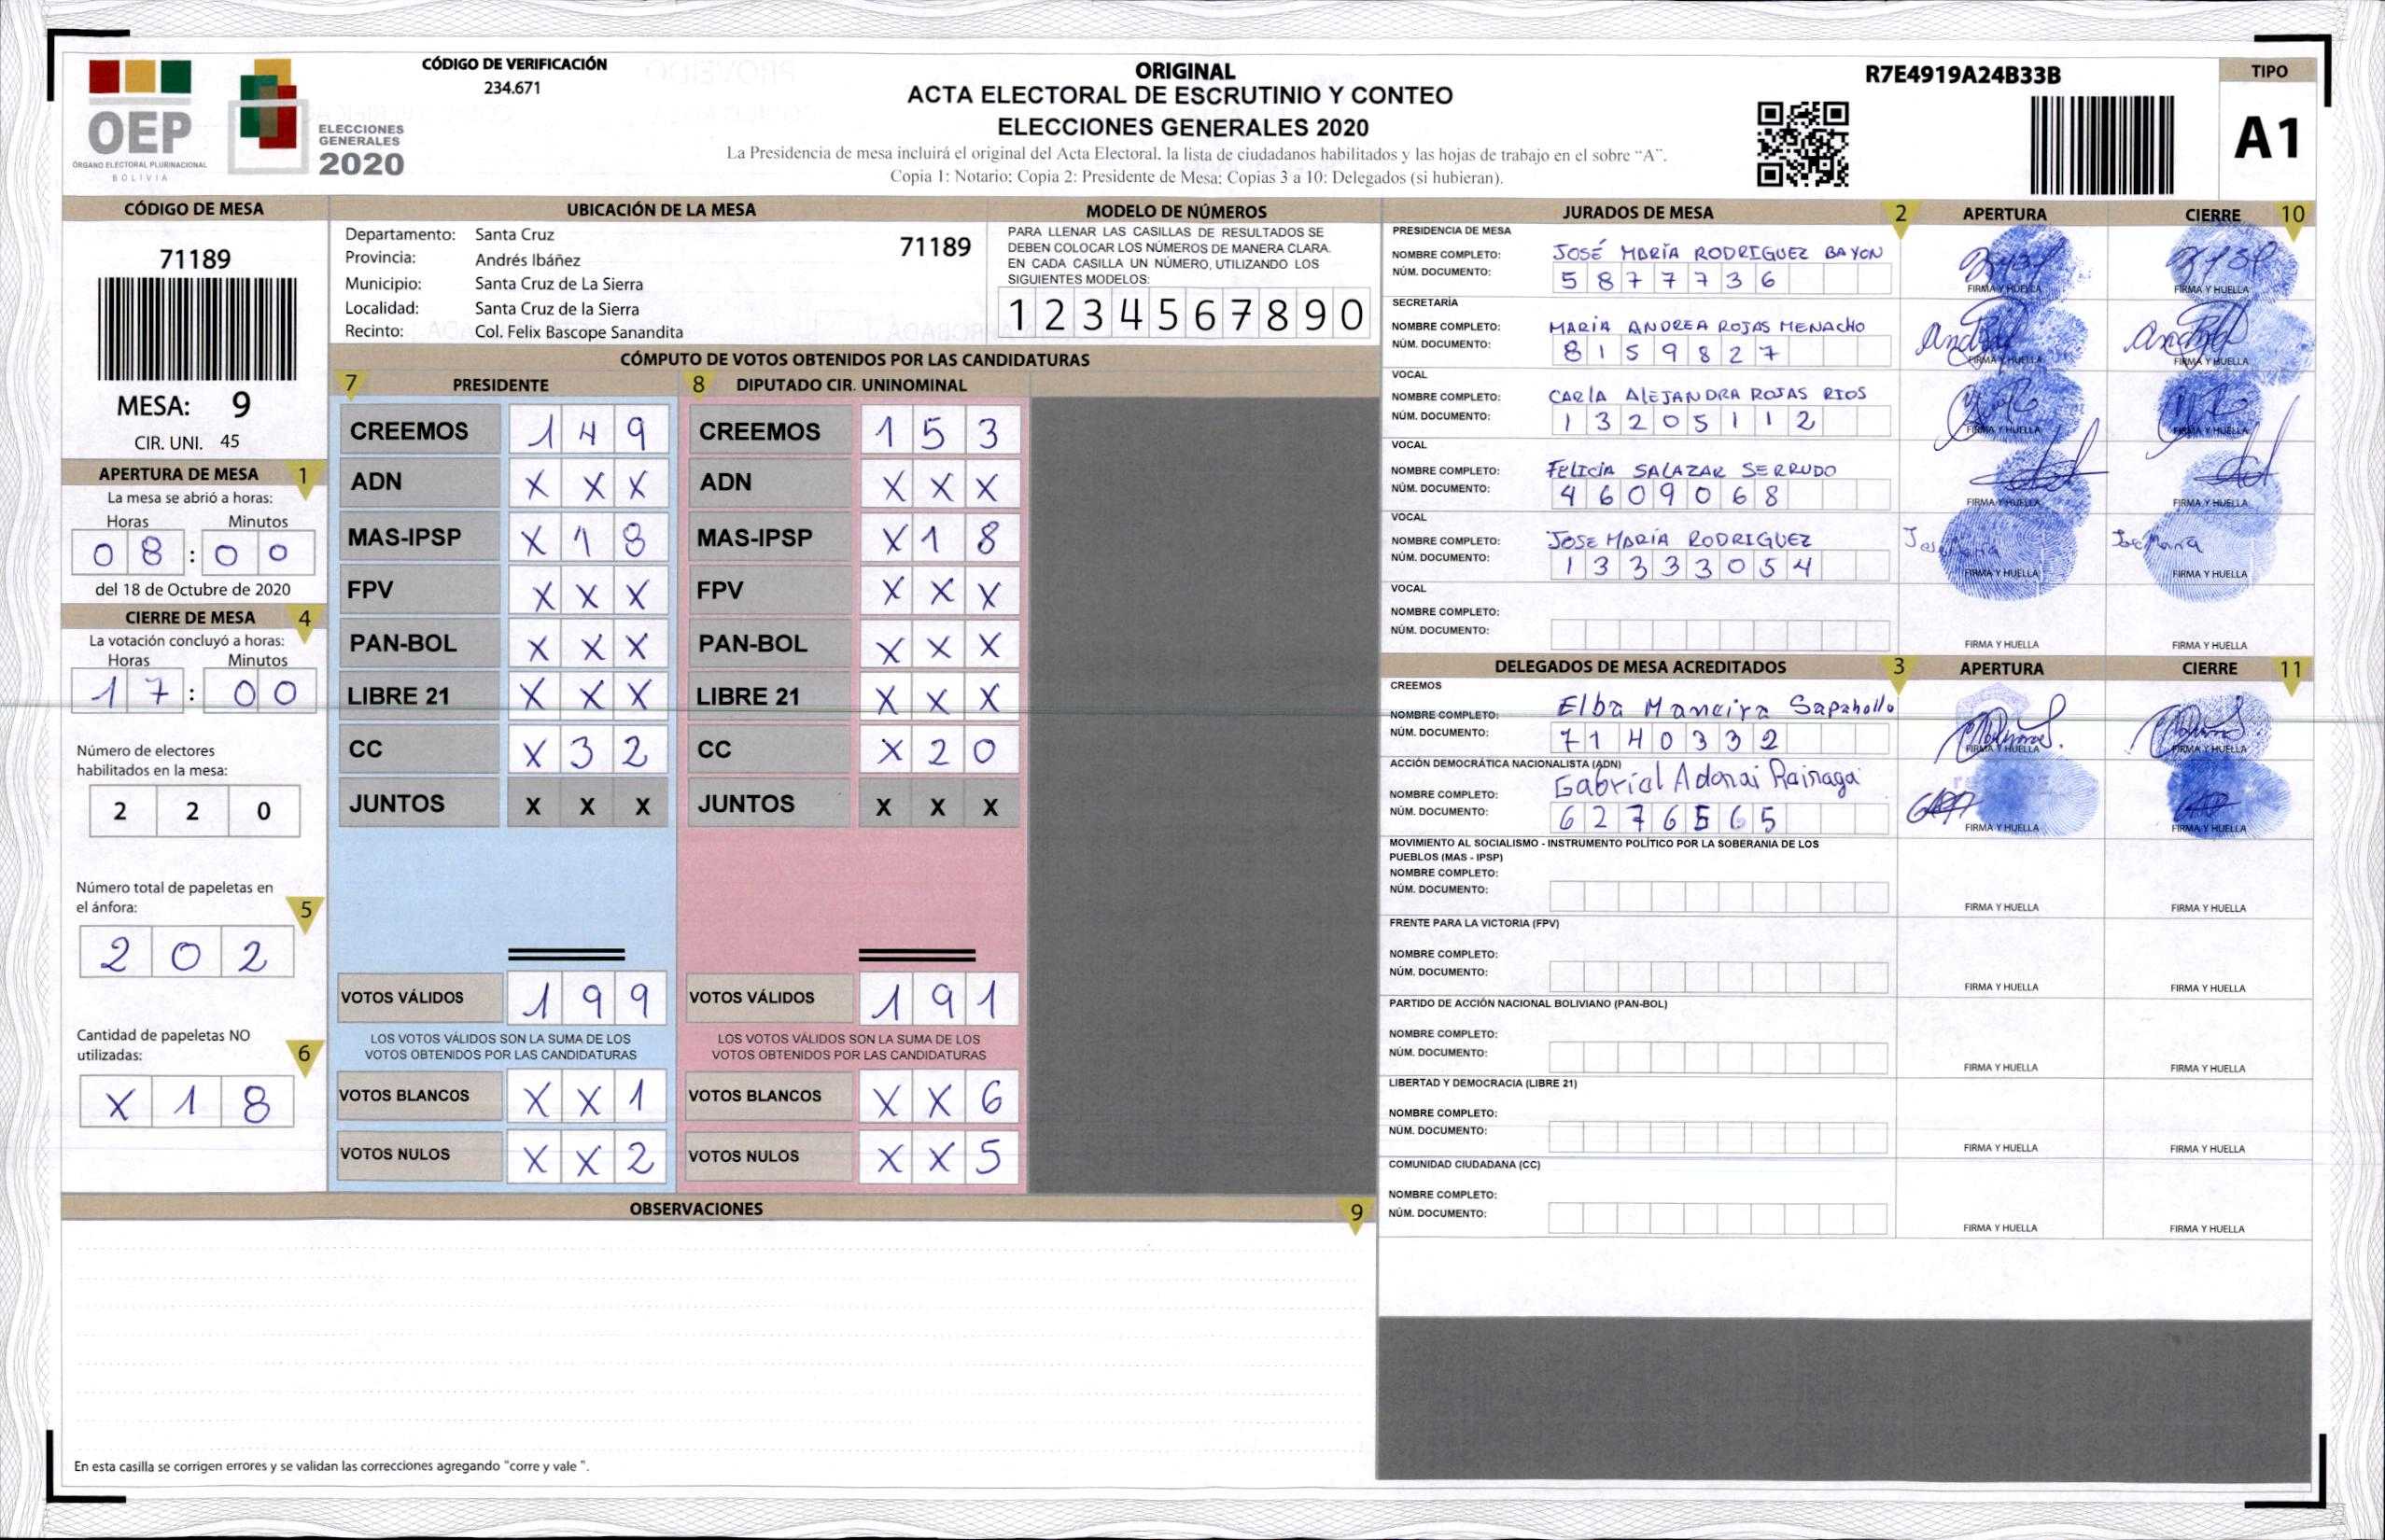 OEP
ÓRGANO ELECTORAL PLURINACIONAL
BOLIVIA
ELECCIONES
GENERALES
2020
CÓDIGO DE VERIFICACIÓN
234.671
ORIGINAL
ACTA ELECTORAL DE ESCRUTINIO Y CONTEO
ELECCIONES GENERALES 2020
La Presidencia de mesa incluirá el original del Acta Electoral, la lista de ciudadanos habilitados y las hojas de trabajo en el sobre "A".
Copia 1: Notario; Copia 2: Presidente de Mesa; Copias 3 a 10: Delegados (si hubieran).
R7E4919A24B33B
TIPO
A1
CÓDIGO DE MESA
71189
MESA: 9
CIR. UNI. 45
APERTURA DE MESA 1
La mesa se abrió a horas:
Horas Minutos
08:00
del 18 de Octubre de 2020
CIERRE DE MESA 4
La votación concluyó a horas:
Horas Minutos
17:00
Número de electores
habilitados en la mesa:
220
Número total de papeletas en
el ánfora: 5
202
Cantidad de papeletas NO
utilizadas: 6
X18
UBICACIÓN DE LA MESA
Departamento: Santa Cruz 71189
Provincia: Andrés Ibáñez
Municipio: Santa Cruz de La Sierra
Localidad: Santa Cruz de la Sierra
Recinto: Col. Felix Bascope Sanandita
MODELO DE NÚMEROS
PARA LLENAR LAS CASILLAS DE RESULTADOS SE
DEBEN COLOCAR LOS NÚMEROS DE MANERA CLARA.
EN CADA CASILLA UN NÚMERO, UTILIZANDO LOS
SIGUIENTES MODELOS:
1234567890
CÓMPUTO DE VOTOS OBTENIDOS POR LAS CANDIDATURAS
7 PRESIDENTE 8 DIPUTADO CIR. UNINOMINAL
CREEMOS 149 CREEMOS 153
ADN XXX ADN XXX
MAS-IPSP X18 MAS-IPSP X18
FPV XXX FPV XXX
PAN-BOL XXX PAN-BOL XXX
LIBRE 21 XXX LIBRE 21 XXX
CC X32 CC X20
JUNTOS XXX JUNTOS XXX
VOTOS VÁLIDOS 199 VOTOS VÁLIDOS 191
LOS VOTOS VÁLIDOS SON LA SUMA DE LOS LOS VOTOS VÁLIDOS SON LA SUMA DE LOS
VOTOS OBTENIDOS POR LAS CANDIDATURAS VOTOS OBTENIDOS POR LAS CANDIDATURAS
VOTOS BLANCOS XX1 VOTOS BLANCOS XX6
VOTOS NULOS XX2 VOTOS NULOS XX5
OBSERVACIONES 9
En esta casilla se corrigen errores y se validan las correcciones agregando "corre y vale ".
JURADOS DE MESA 2 APERTURA CIERRE 10
PRESIDENCIA DE MESA
NOMBRE COMPLETO: JOSÉ MARÍA RODRIGUEZ BAYON
NÚM. DOCUMENTO: 5877736
FIRMA Y HUELLA FIRMA Y HUELLA
SECRETARÍA
NOMBRE COMPLETO: MARÍA ANDREA ROJAS MENACHO
NÚM. DOCUMENTO: 8159827
FIRMA Y HUELLA FIRMA Y HUELLA
VOCAL
NOMBRE COMPLETO: CARLA ALEJANDRA ROJAS RIOS
NÚM. DOCUMENTO: 13205112
FIRMA Y HUELLA FIRMA Y HUELLA
VOCAL
NOMBRE COMPLETO: FELICIA SALAZAR SERRUDO
NÚM. DOCUMENTO: 4609068
FIRMA Y HUELLA FIRMA Y HUELLA
VOCAL
NOMBRE COMPLETO: JOSE MARÍA RODRIGUEZ
NÚM. DOCUMENTO: 13333054
FIRMA Y HUELLA FIRMA Y HUELLA
VOCAL
NOMBRE COMPLETO:
NÚM. DOCUMENTO:
FIRMA Y HUELLA FIRMA Y HUELLA
DELEGADOS DE MESA ACREDITADOS 3 APERTURA CIERRE 11
CREEMOS
NOMBRE COMPLETO: Elba
NÚM. DOCUMENTO: 7140332
FIRMA Y HUELLA FIRMA Y HUELLA
ACCIÓN DEMOCRÁTICA NACIONALISTA (ADN)
NOMBRE COMPLETO: Gabriel Adonai
NÚM. DOCUMENTO: 6276565
FIRMA Y HUELLA FIRMA Y HUELLA
MOVIMIENTO AL SOCIALISMO - INSTRUMENTO POLÍTICO POR LA SOBERANIA DE LOS
PUEBLOS (MAS - IPSP)
NOMBRE COMPLETO:
NÚM. DOCUMENTO:
FIRMA Y HUELLA FIRMA Y HUELLA
FRENTE PARA LA VICTORIA (FPV)
NOMBRE COMPLETO:
NÚM. DOCUMENTO:
FIRMA Y HUELLA FIRMA Y HUELLA
PARTIDO DE ACCIÓN NACIONAL BOLIVIANO (PAN-BOL)
NOMBRE COMPLETO:
NÚM. DOCUMENTO:
FIRMA Y HUELLA FIRMA Y HUELLA
LIBERTAD Y DEMOCRACIA (LIBRE 21)
NOMBRE COMPLETO:
NÚM. DOCUMENTO:
FIRMA Y HUELLA FIRMA Y HUELLA
COMUNIDAD CIUDADANA (CC)
NOMBRE COMPLETO:
NÚM. DOCUMENTO:
FIRMA Y HUELLA FIRMA Y HUELLA